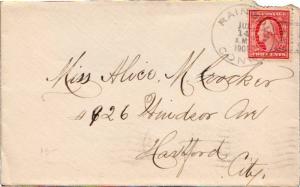 RAIN
14
A.M.
190
CON
TWO CENTS
Miss Alice M. Crocker
#926 Windsor Ave
Hartford
City.